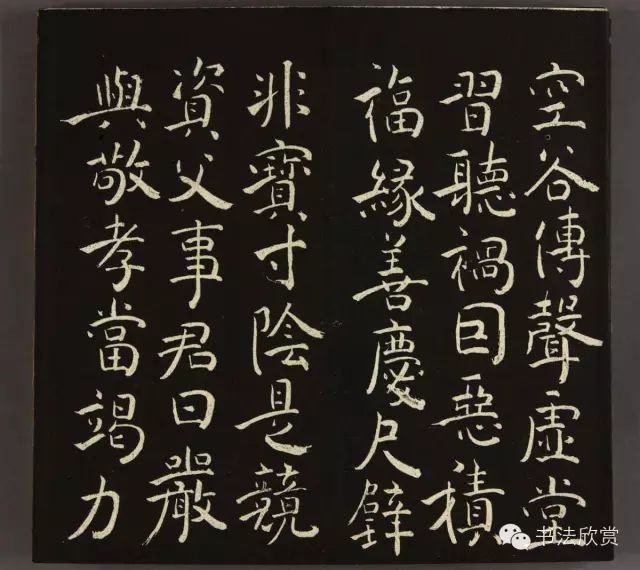 空谷傳聲虛堂
習聽禍因惡積
福緣善慶尺璧
非寶寸陰是競
資父事君曰嚴
與敬孝當竭力
书法欣赏